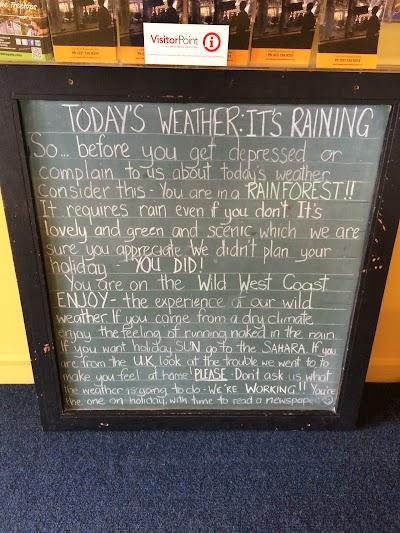 VisitorPoint
TODAY'S WEATHER: IT'S RAINING
So... before you get depressed or
complain to us about today's weather
Consider this - You are in a RAINFOREST!!
It requires rain even if you don't. It's
lovely and green and scenic which we are
sure you appreciate. We didn't plan your
holiday - YOU DID!
You are on the Wild West Coast
ENJOY - the experience of our wild
weather. If you come from a dry climate
enjoy the feeling of running naked in the rain
If you want holiday SUN go to the SAHARA. If you
are from the U.K. look at the trouble we went to to
make you feel at home! PLEASE - Don't ask us what
the weather is going to do - WE'RE WORKING!! You're
the one on holiday, with time to read a newspaper